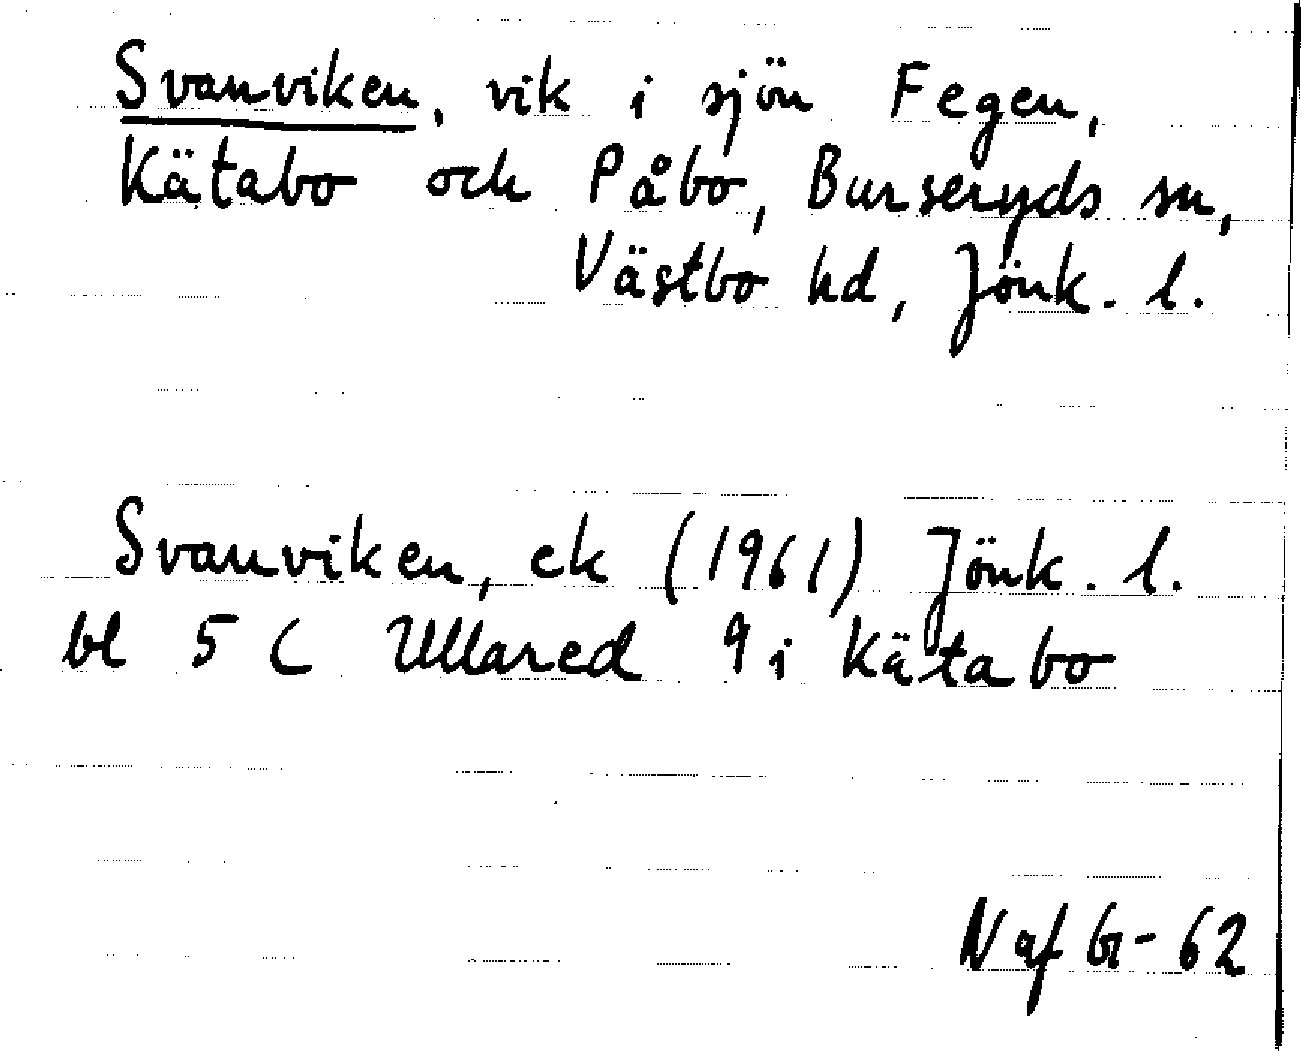 Svanviken, vik i sjön Fegen,
Kätabo och Påbo, Burseryds sn,
Västbo hd, Jönk. l.
Svanviken, ek (1961) Jönk. l.
bl 5 C Ullared 9 i Kätabo
Naf Gr-62